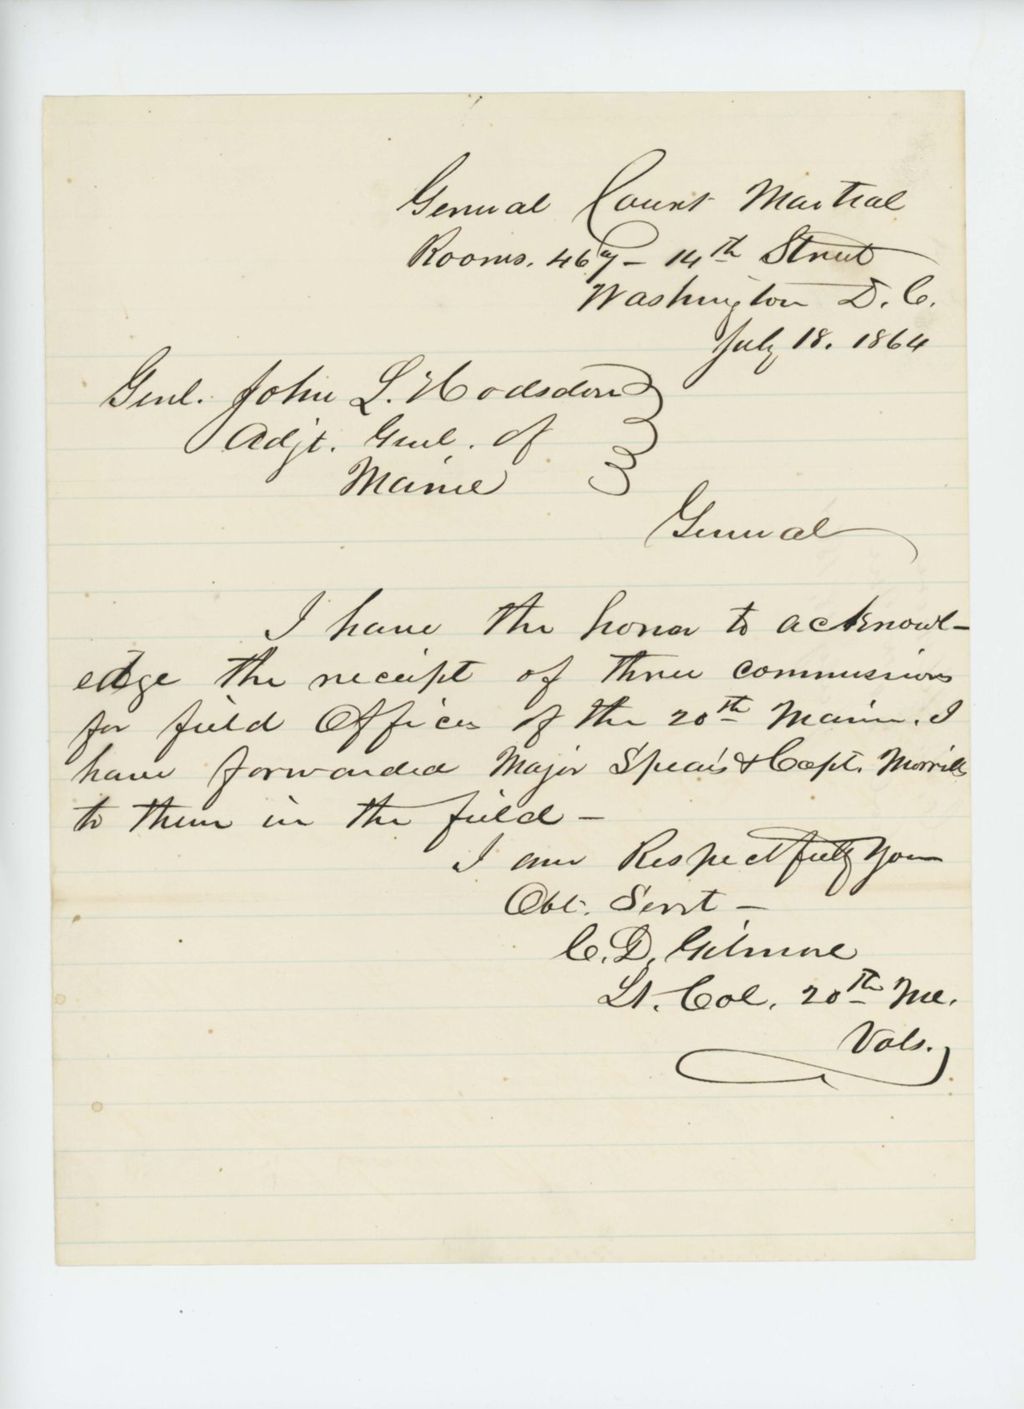 General Court Martial
Rooms. 467 - 14th Street
Washington D.C.
July 18. 1864
Genl. John L. Hodsdon
Adjt. Genl. of
Maine
General
I have the honor to acknowl-
edge the receipt of three commissions
for field Officers of the 20th Maine. I
have forwarded Major Spear's & Capt. Morrills
to them in the field -
I am Respectfully Your
Obt. Servt -
C. D. Gilmore
Lt. Col. 20th Me.
Vols.